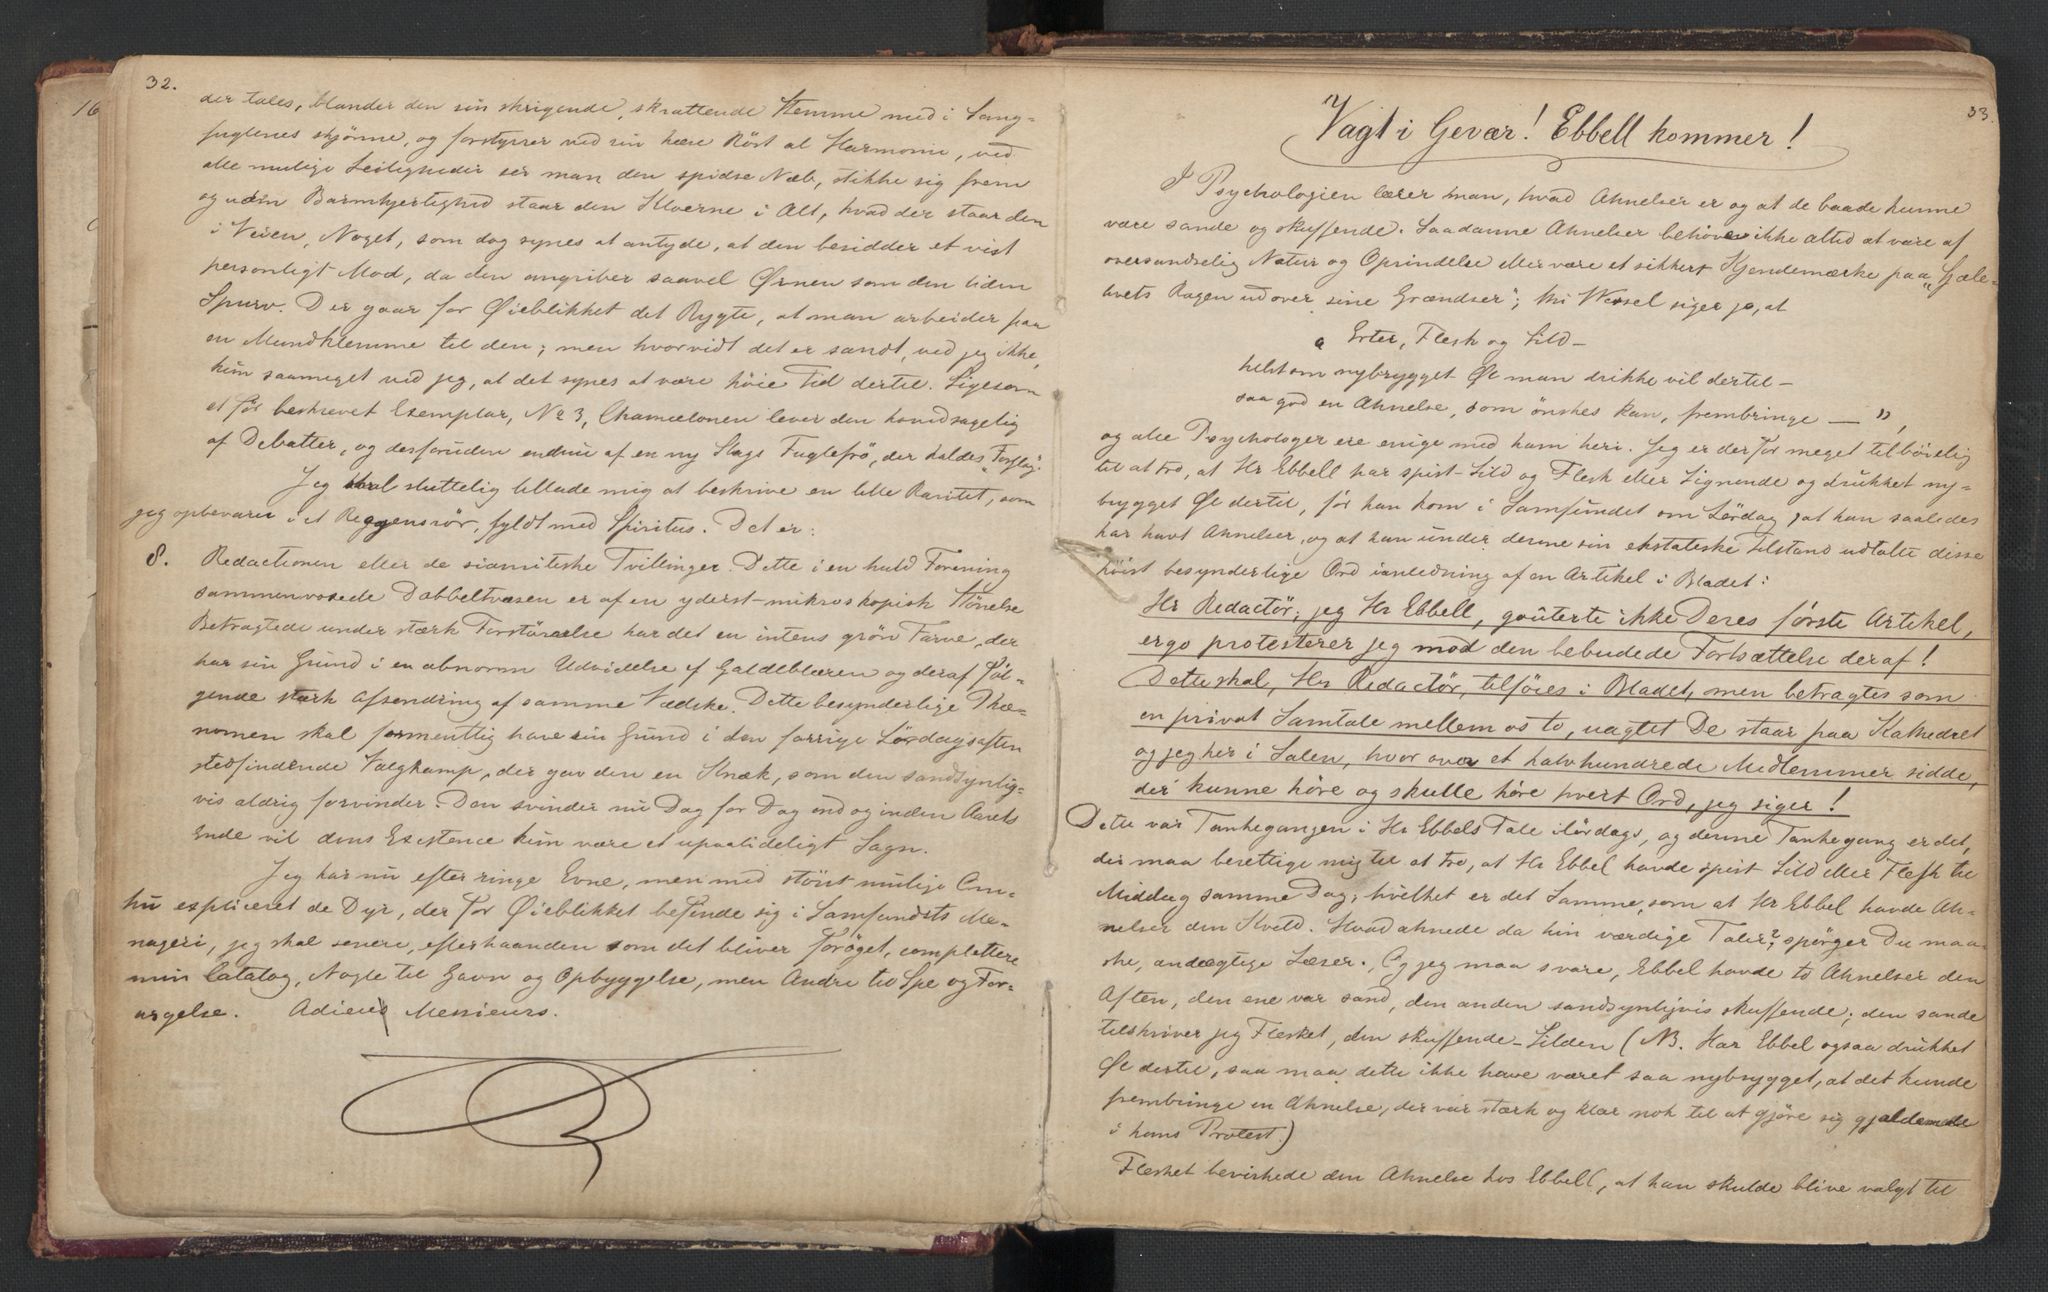 32.
der tales, blander den sin skrigende, skrattende Stemme med i Sang-
fuglenes skjønne, og forstyrrer ved sin hæse Röst al Harmonie, ved
alle mulige Leiligheder ser man den spidse Næb, stikke sig frem
og uden Barmhjertighed staar den Kloerne i Alt, hvad der staar den
i Veien, Noget, som dog synes at antyde, at den besidder et vist
personligt Mod, da den angriber saavel Ørnen som den liden
Spurv. Der gaar for Øieblikket det Rygte, at man arbeider paa
en Mundklemme til den; men hvorvidt det er sandt, ved jeg ikke,
kun saameget ved jeg, at det synes at være höie Tid dertil. Ligesom
et för beskrevet Exemplar, No 3, Chamæleonen lever den hovedsagelig
af Debatter, og desforuden endnu af en ny Slags Fuglefrö, der kaldes „Forslag".
Jeg skal sluttelig tillade mig at beskrive en lille Raritet, som
jeg opbevarer i et Reagensrör, fyldt med Spiritus. Det er:
8. Redactionen eller de siamitiske Tvillinger. Dette i en huld Forening
sammenvoxede Dobbeltvæsen er af en yderst mikroskopisk Störrelse
Betragtede under stærk Forstörrelse har det en intens grön Farve, der
har sin Grund i en abnorm Udvidelse af Galdeblæren og deraf föl-
gende stærk Afsondring af samme Vædske. Dette besynderlige Phæ-
nomen skal formentlig have sin Grund i den forrige Lördagsaften
stedfindende Valgkamp, der gav den en Knæk, som den sandsynlig-
vis aldrig forvinder. Den svinder nu Dag for Dag ind og inden Aarets
Ende vil dens Existence kun være et upaalideligt Sagn.
Jeg har nu efter ringe Evne, men med störst mulige Om-
hu expliceret de Dyr, der for Øieblikket befinde sig i Samfundets Me-
nageri, jeg skal senere, efterhaanden som det bliver forøget, complettere
min Catalog, Nogle til Gavn og Opbyggelse, men Andre til Spe og For-
argelse. Adieu Messieurs.
33.
Vagt i Gevær! Ebbell kommer!
I Psychologien lærer man, hvad Ahnelser er og at de baade kunne
være sande og skuffende. Saadanne Ahnelser behöver ikke altid at være af
oversandselig Natur og Oprindelse eller være et sikkert Kjendemærke paa „Sjæle-
livets Ragen ud over sine Grændser"; thi Wessel siger jo, at
„ Erter, Flesk og Sild –
helst om nybrygget Øl man drikke vil dertil –
saa god en Ahnelse, som önskes kan, frembringe – ",
og alle Psychologer ere enige med ham heri. Jeg er derfor meget tilböielig
til at tro, at Hr Ebbell har spist Sild og Flesk eller Lignende og drukket ny-
brygget Øl dertil, för han kom i Samfundet om Lördag, at han saaledes
har havt Ahnelser, og at han under denne sin ekstatiske Tilstand udtalte disse
höist besynderlige Ord ianledning af en Artikel i Bladet:
Hr Redactör; jeg Hr Ebbell, goûterte ikke Deres förste Artikel,
ergo protesterer jeg mod den bebudede Fortsættelse deraf!
Dette skal, Hr Redactör, tilföies i Bladet, men betragtes som
en privat Samtale mellem os to, uagtet De staar paa Kathedret
og jeg her i Salen, hvor over et halvhundrede Medlemmer sidde,
der kunne höre og skulle höre hvert Ord, jeg siger!
Dette var Tankegangen i Hr Ebbels Tale ilördags, og denne Tankegang er det,
der maa berettige mig til at tro, at Hr Ebbel havde spist Sild eller Flesk til
Middag samme Dag, hvilket er det Samme, som at Hr Ebbel havde Ah-
nelser den Kveld. Hvad ahnede da hin værdige Taler? spörger Du maa-
ske, andægtige Læser. Og jeg maa svare, Ebbel havde to Ahnelser den
Aften, den ene var sand, den anden sandsynligvis skuffende; den sande
tilskriver jeg Flesket, den skuffende – Silden (NB. Har Ebbel ogsaa drukket
Øl dertil, saa maa dette ikke have været saa nybrygget, at det kunde
frembringe en Ahnelse, der var stærk og klar nok til at gjöre sig gjældende
i hans Protest.)
Flesket bevirkede den Ahnelse hos Ebbell, at han skulde blive valgt til